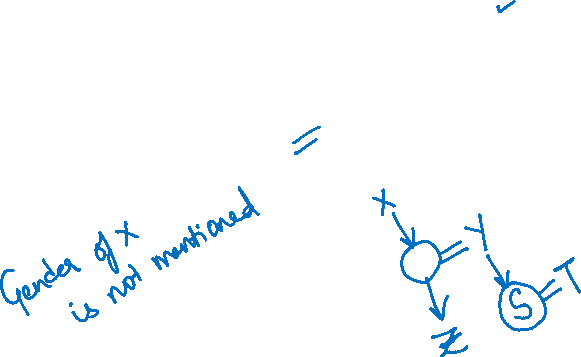 Gender of X
is not mentioned
X
Y
Z
S
T